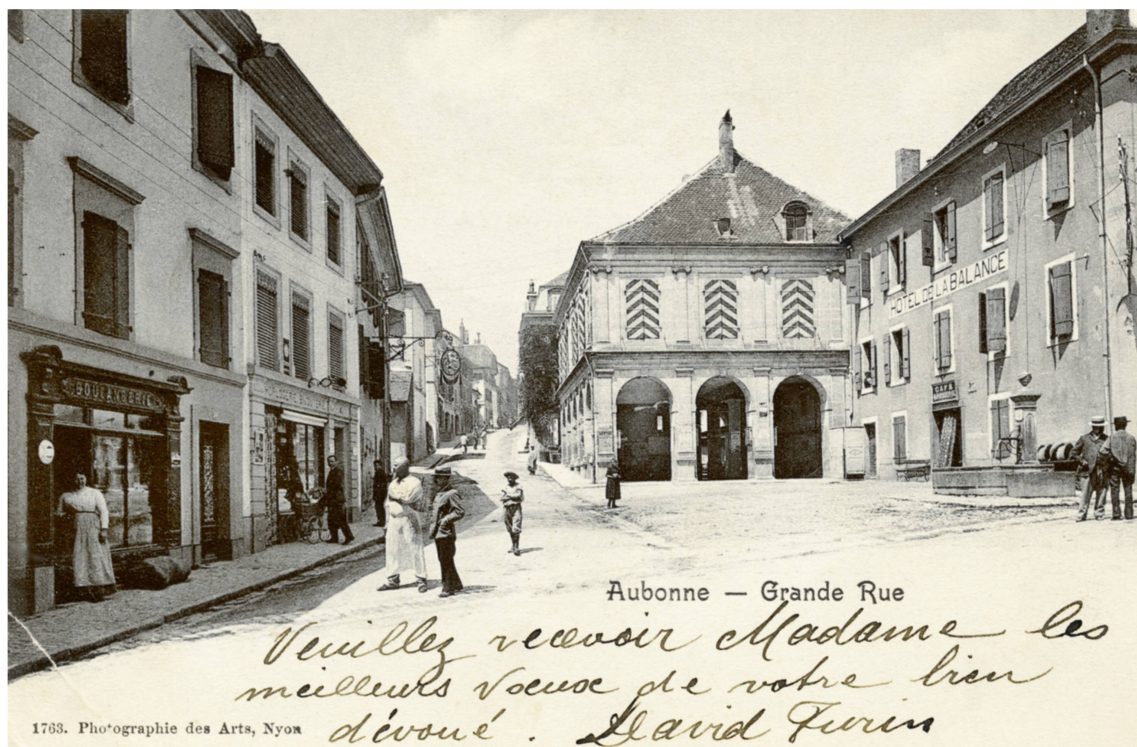 BOULANGERIE
HÔTEL DE LA BALANCE
CAFÉ
Aubonne — Grande Rue
Veuillez recevoir Madame les
meilleurs voeux de votre bien
dévoué. David Turin
1763. Photographie des Arts, Nyon